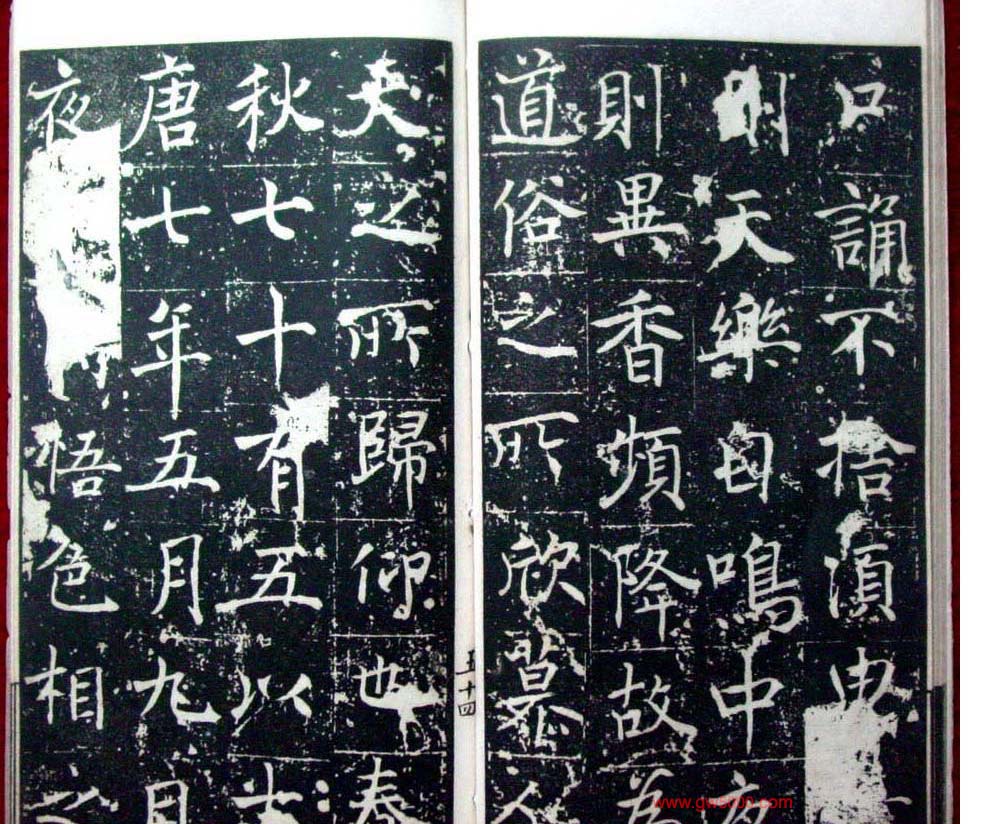 口誦不捨須臾
則天樂自鳴中夜
則異香頻降故為
道俗之所欣慕人
天之所歸仰也春
秋七十有五以七
唐七年五月九月
夜悟色相之
五十四
www.gwsc00.com